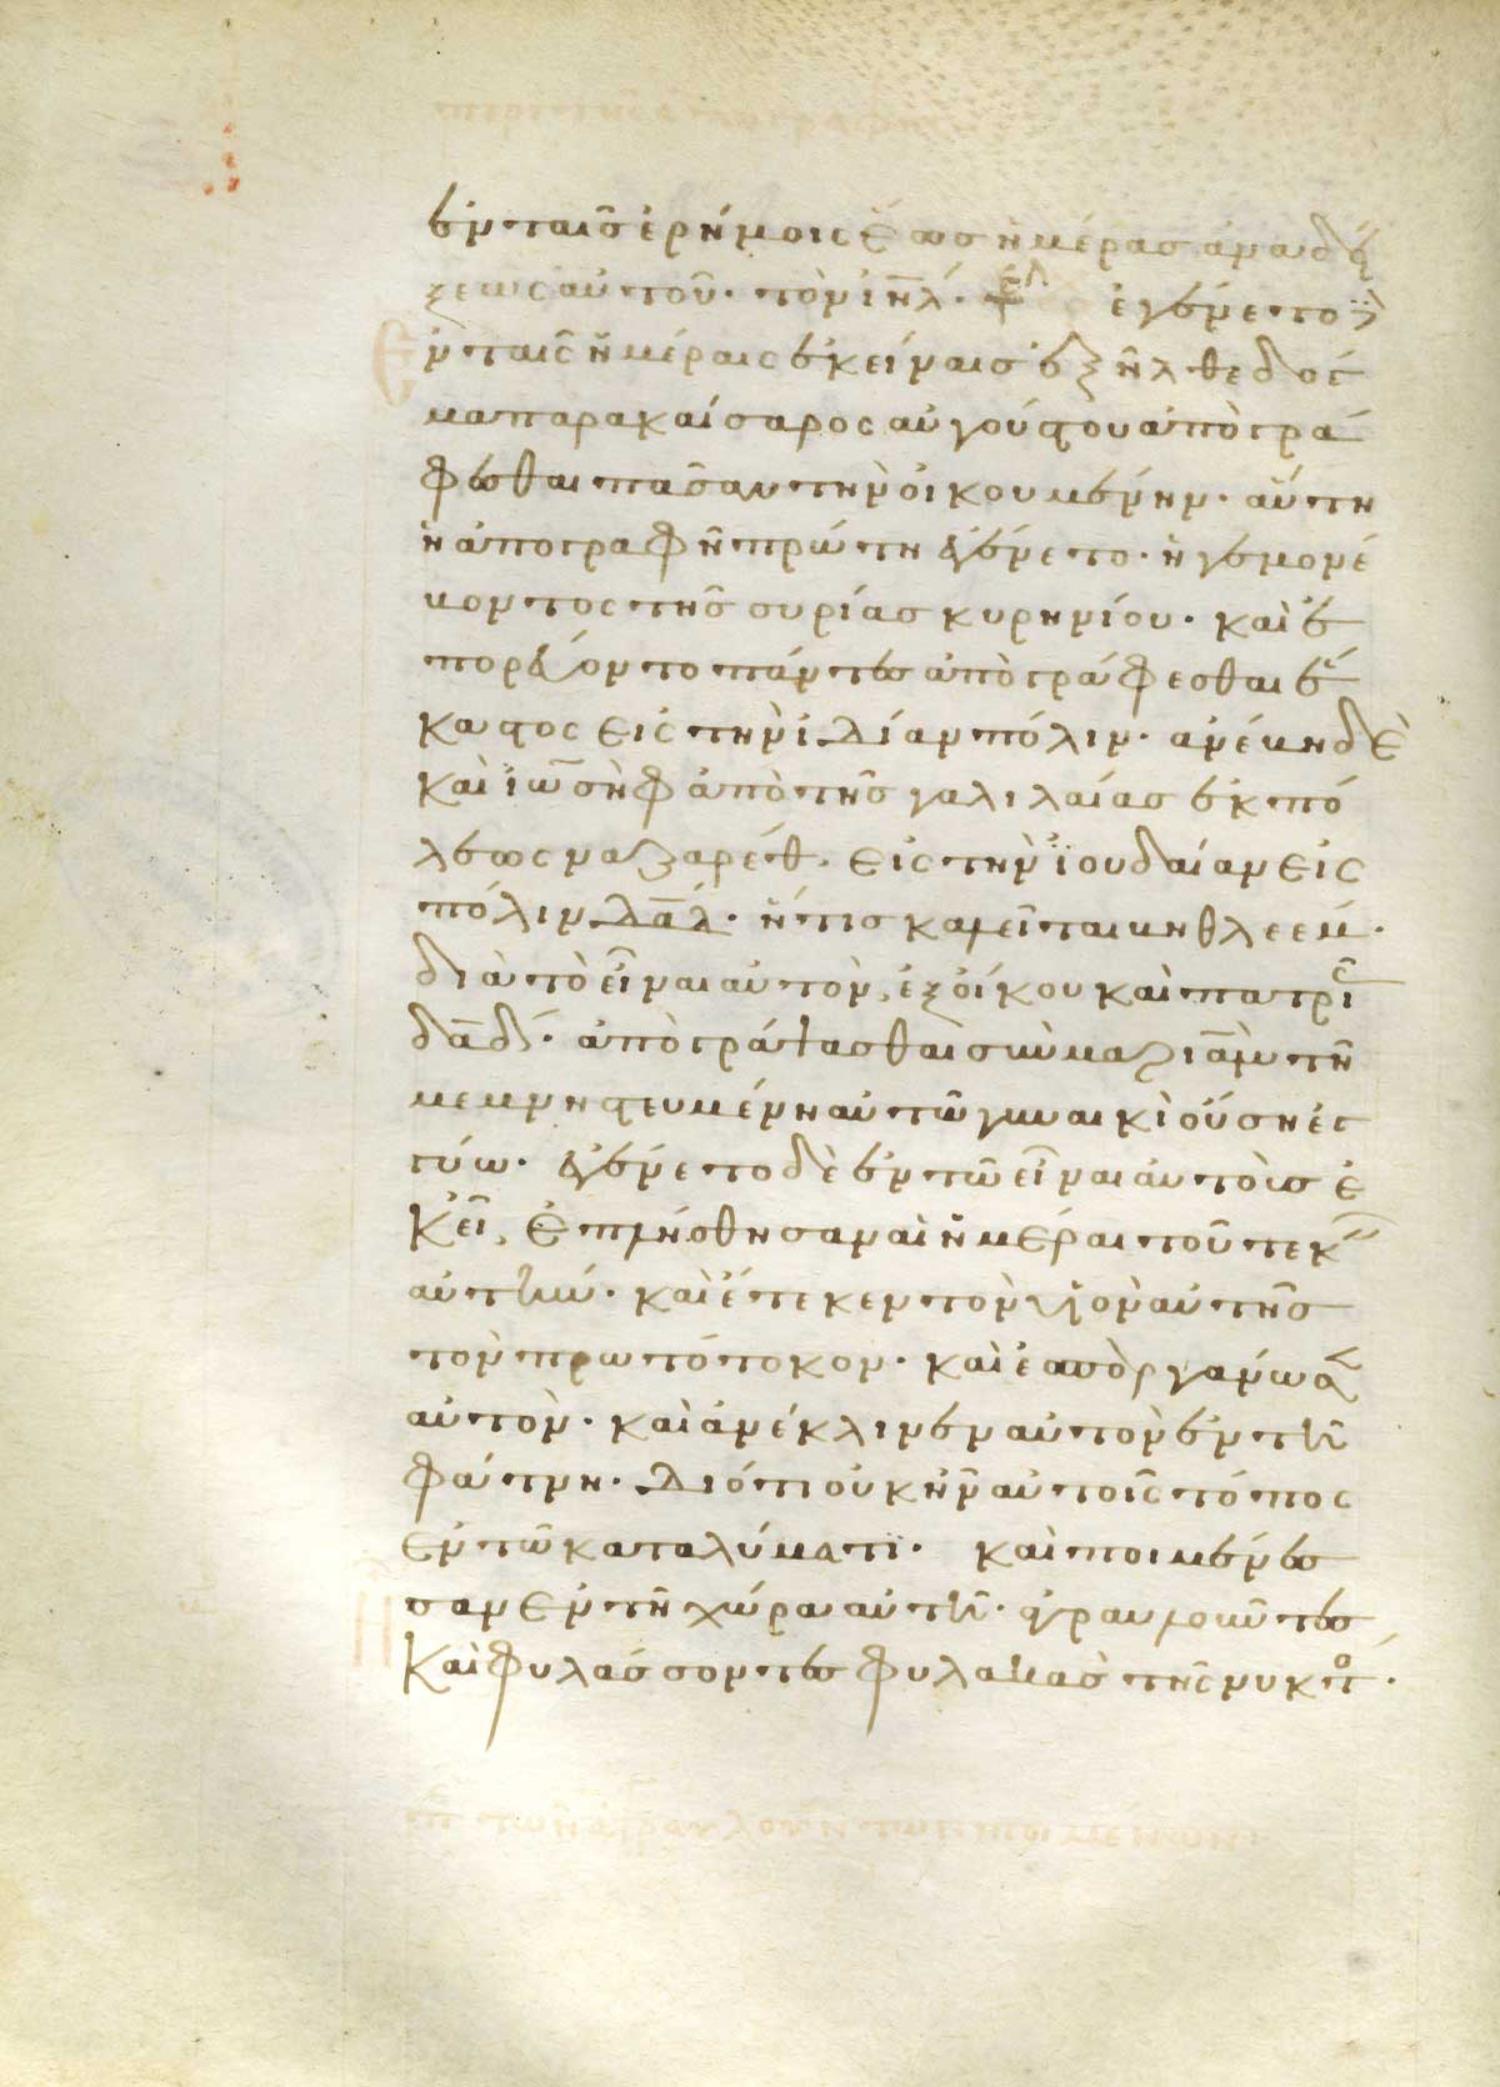 ἐν ταῖς ἐρήμοις ἕως ἡμέρας ἀναδεί
ξεως αὐτοῦ. τὸν ἰη̅λ. ἐγένετο
ἐν ταῖς ἡμέραις ἐκείναις ἐξῆλθε δόγ
μα παρα καίσαρος αὐγούστου ἀπὸγρά
φεσθαι πᾶσαν τὴν οἰκουμένην. αὕτη
ἡ ἀπογραφὴ πρώτη ἐγένετο. ἡγεμονέ
υοντος τῆς συρίας κυρηνίου. καὶ ἐ
πορεύοντο πάντες ἀπὸγράφεσθαι ἕ
καστος εἰς τὴν ἰδίαν πόλιν. ἀνέβη δὲ
καὶ ἰωσὴφ ἀπὸ τῆς γαλιλαίας ἐκ πό
λεως ναζαρέθ. εἰς τὴν ἰουδαίαν εἰς
πόλιν δα̅δ. ἥτις καλεῖται βηθλεέμ.
διὰ τὸ εἶναι αὐτὸν, ἐξ οἴκου καὶ πατριᾶς
δα̅δ. ἀπὸγράψασθαι σὺν μαριὰμ τῆ
μεμνηστευμένη αὐτῶ γυναικὶ οὔση ἐγ
κύω. ἐγένετο δὲ ἐν τῶ εἶναι αὐτοὺς ἐ
κεῖ, ἐπλήσθησαν αἱ ἡμέραι τοῦ τεκεῖν
αὐτήν. καὶ ἔτεκεν τὸν υἱὸν αὐτῆς
τὸν πρωτότοκον. καὶ ἐσπαργάνωσεν
αὐτὸν. καὶ ἀνέκλινεν αὐτὸν ἐν τῆ
φάτνη. διότι οὐκ ἦν αὐτοῖς τόπος
ἐν τῶ καταλύματι. καὶ ποιμένες ἦ
σαν ἐν τῆ χώρα αὐτῆ. ἀγραυλοῦντες
καὶ φυλάσσοντες φυλακὰς τῆς νυκτὸ.